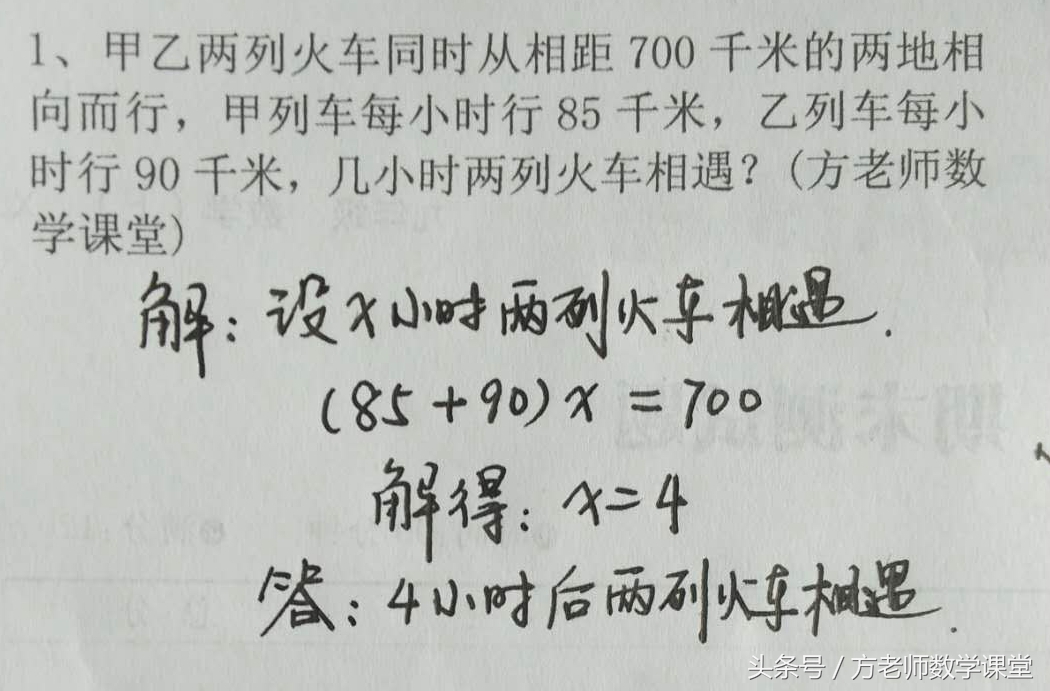 1、甲乙两列火车同时从相距 700 千米的两地相
向而行，甲列车每小时行 85 千米，乙列车每小
时行 90 千米，几小时两列火车相遇？(方老师数
学课堂)
解：设x小时两列火车相遇.
(85+90)x=700
解得：x=4
答：4小时后两列火车相遇.
头条号 / 方老师数学课堂